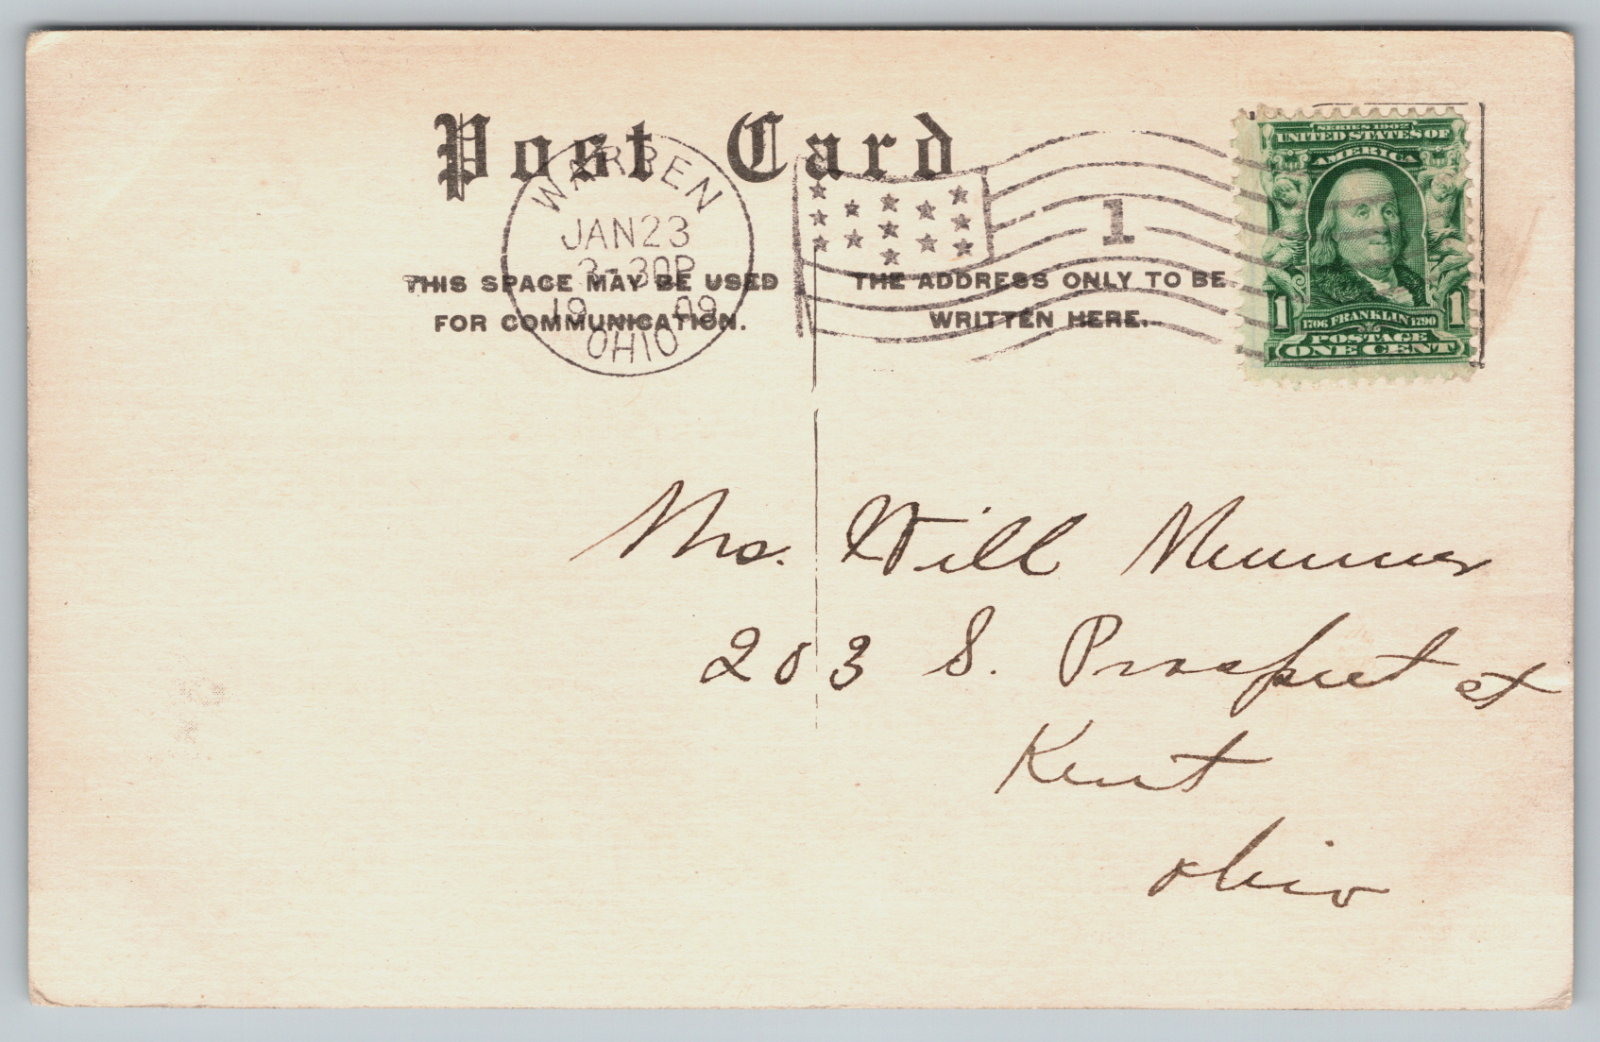 Post Card
WARREN
JAN 23
3-30P
1909
OHIO
1
THIS SPACE MAY BE USED
FOR COMMUNICATION.
THE ADDRESS ONLY TO BE
WRITTEN HERE.
SERIES 1902
UNITED STATES OF
AMERICA
1 1
1706 FRANKLIN 1790
POSTAGE
ONE CENT
Mrs. Will
203 S. Prospect st
Kent
Ohio